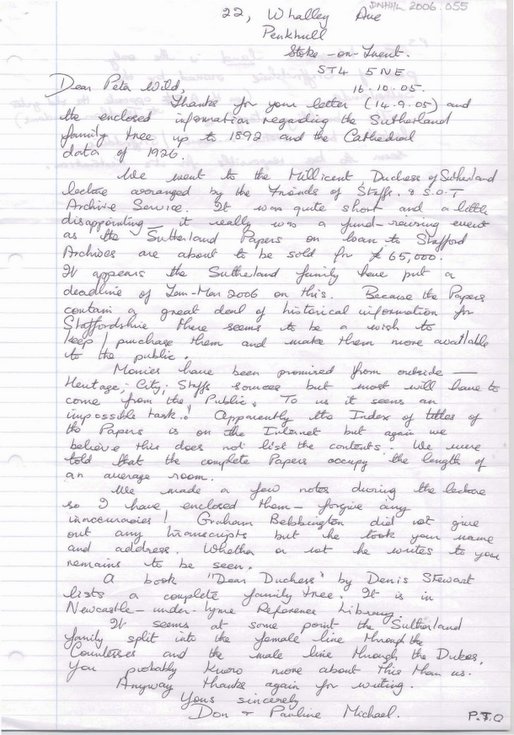 DNHHL 2006.055
22, Whalley Ave
Penkhull
Stoke-on-Trent.
ST4 5NE
16.10.05.
Dear Peter Wild,
Thanks for your letter (14.9.05) and
the enclosed information regarding the Sutherland
family tree up to 1892 and the Cathedral
data of 1926.
We went to the Millicent Duchess of Sutherland
lecture arranged by the Friends of Staffs. & S.O.T
Archive Service. It was quite short and a little
disappointing, it really was a fund-raising event
as the Sutherland Papers on loan to Stafford
Archives are about to be sold for £65,000.
It appears the Sutherland family have put a
deadline of Jan-Mar 2006 on this. Because the Papers
contain a great deal of historical information for
Staffordshire there seems to be a wish to
keep/purchase them and make them more available
to the public.
Monies have been promised from outside —
Heritage, City, Staffs sources but most will have to
come from the Public. To us it seems an
impossible task.! Apparently the Index of titles of
the Papers is on the Internet but again we
believe this does not list the contents. We were
told that the complete Papers occupy the length of
an average room.
We made a few notes during the lecture
so I have enclosed them - forgive any
inaccuracies! Graham Bebbington did not give
out any transcripts but he took your name
and address. Whether or not he writes to you
remains to be seen.
A book "Dear Duchess" by Denis Stewart
lists a complete family tree. It is in
Newcastle-under-Lyme Reference Library.
It seems at some point the Sutherland
family split into the female line through the
Countesses and the male line through the Dukes.
You probably know more about this than us.
Anyway thanks again for writing.
Yours sincerely
Don & Pauline Michael.
P.T.O